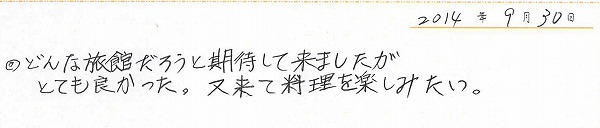 2014年 9月30日
◎どんな旅館だろうと期待して来ましたが
とても良かった。又来て料理を楽しみたい。